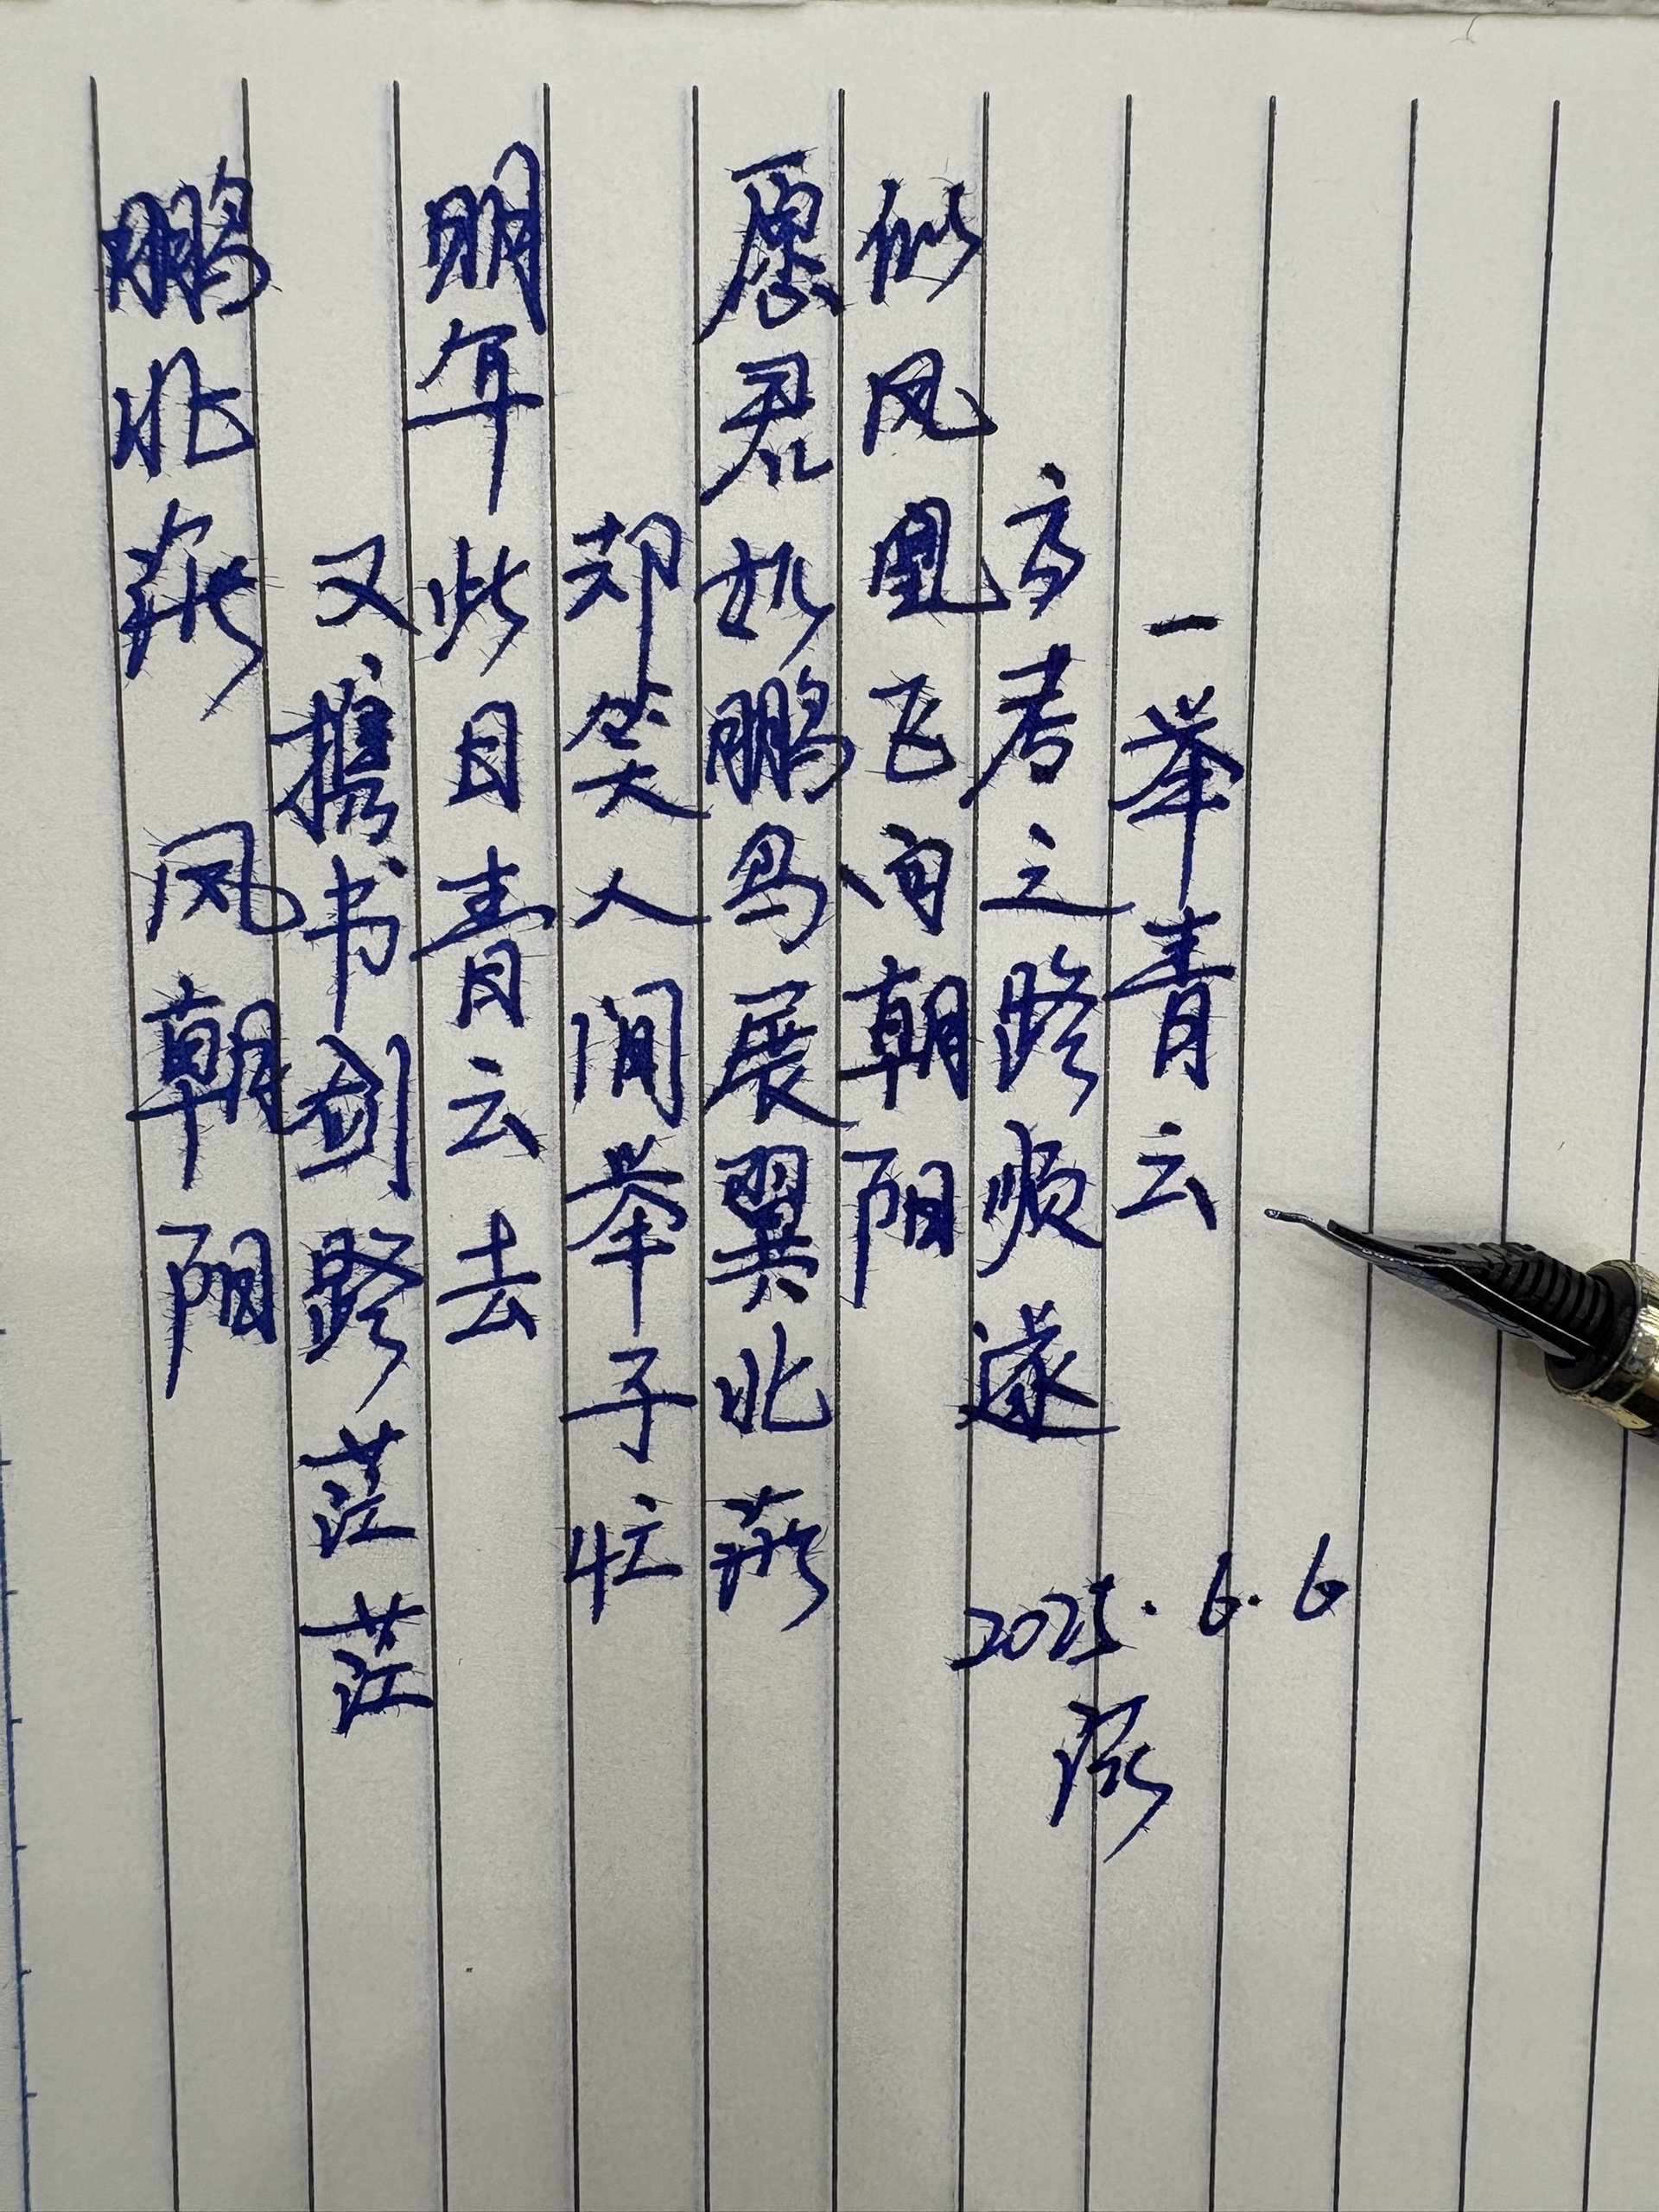 鹏北燕 凤朝阳
又携书剑路茫茫
明年此日青云去
却笑人间举子忙
愿君如鹏鸟展翼北燕
似凤凰飞向朝阳
高考之路顺遂
一举青云
2025.6.6